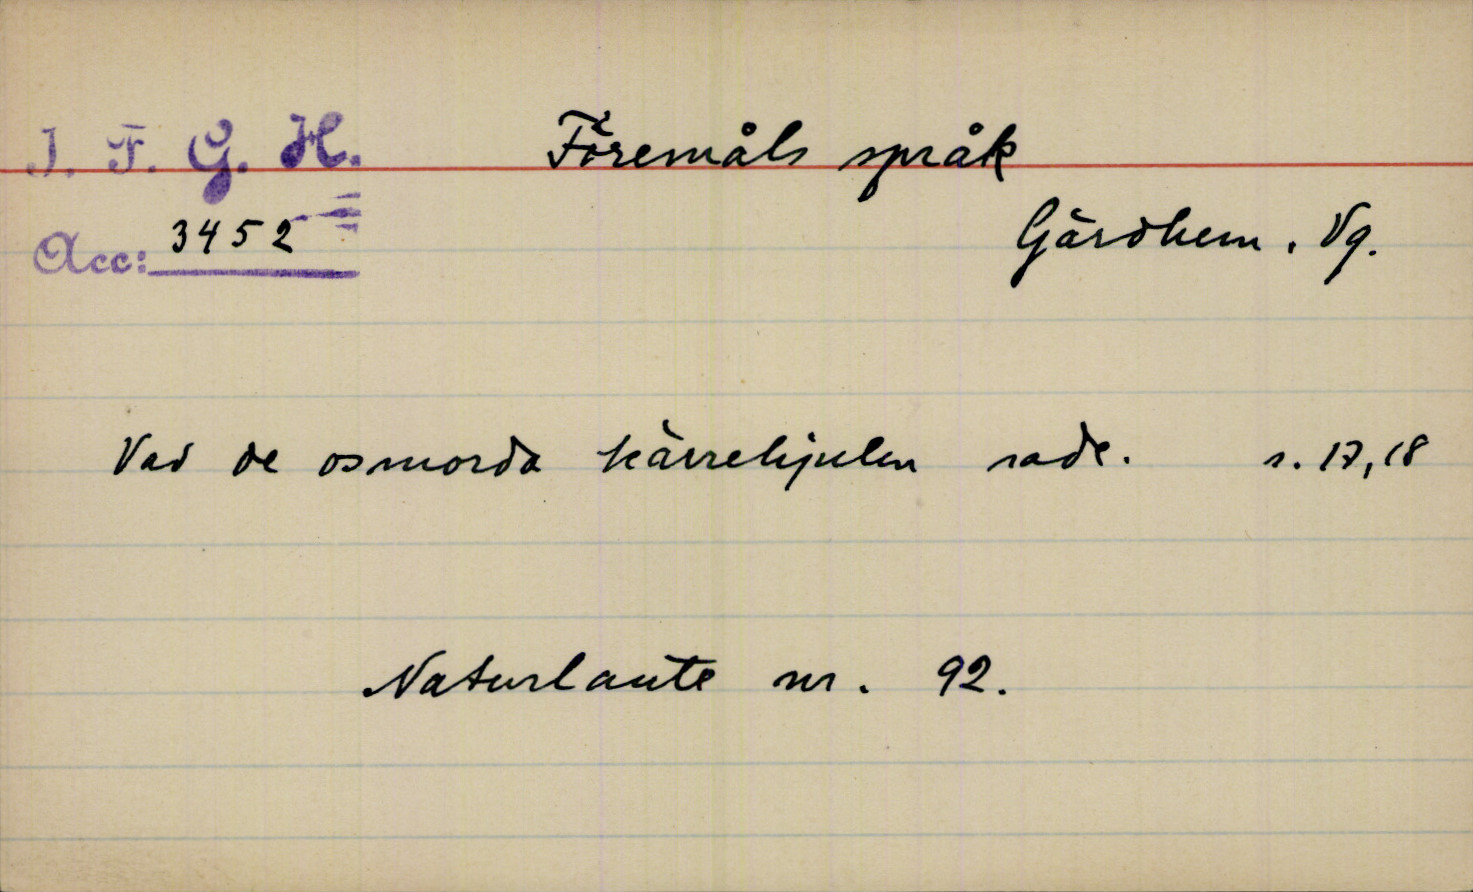 I. F. G. H. Föremåls språk
Acc: 3452 Gärdhem. Vg.
Vad de osmorda kärrehjulen sade. s. 17, 18
Naturlaute nr. 92.